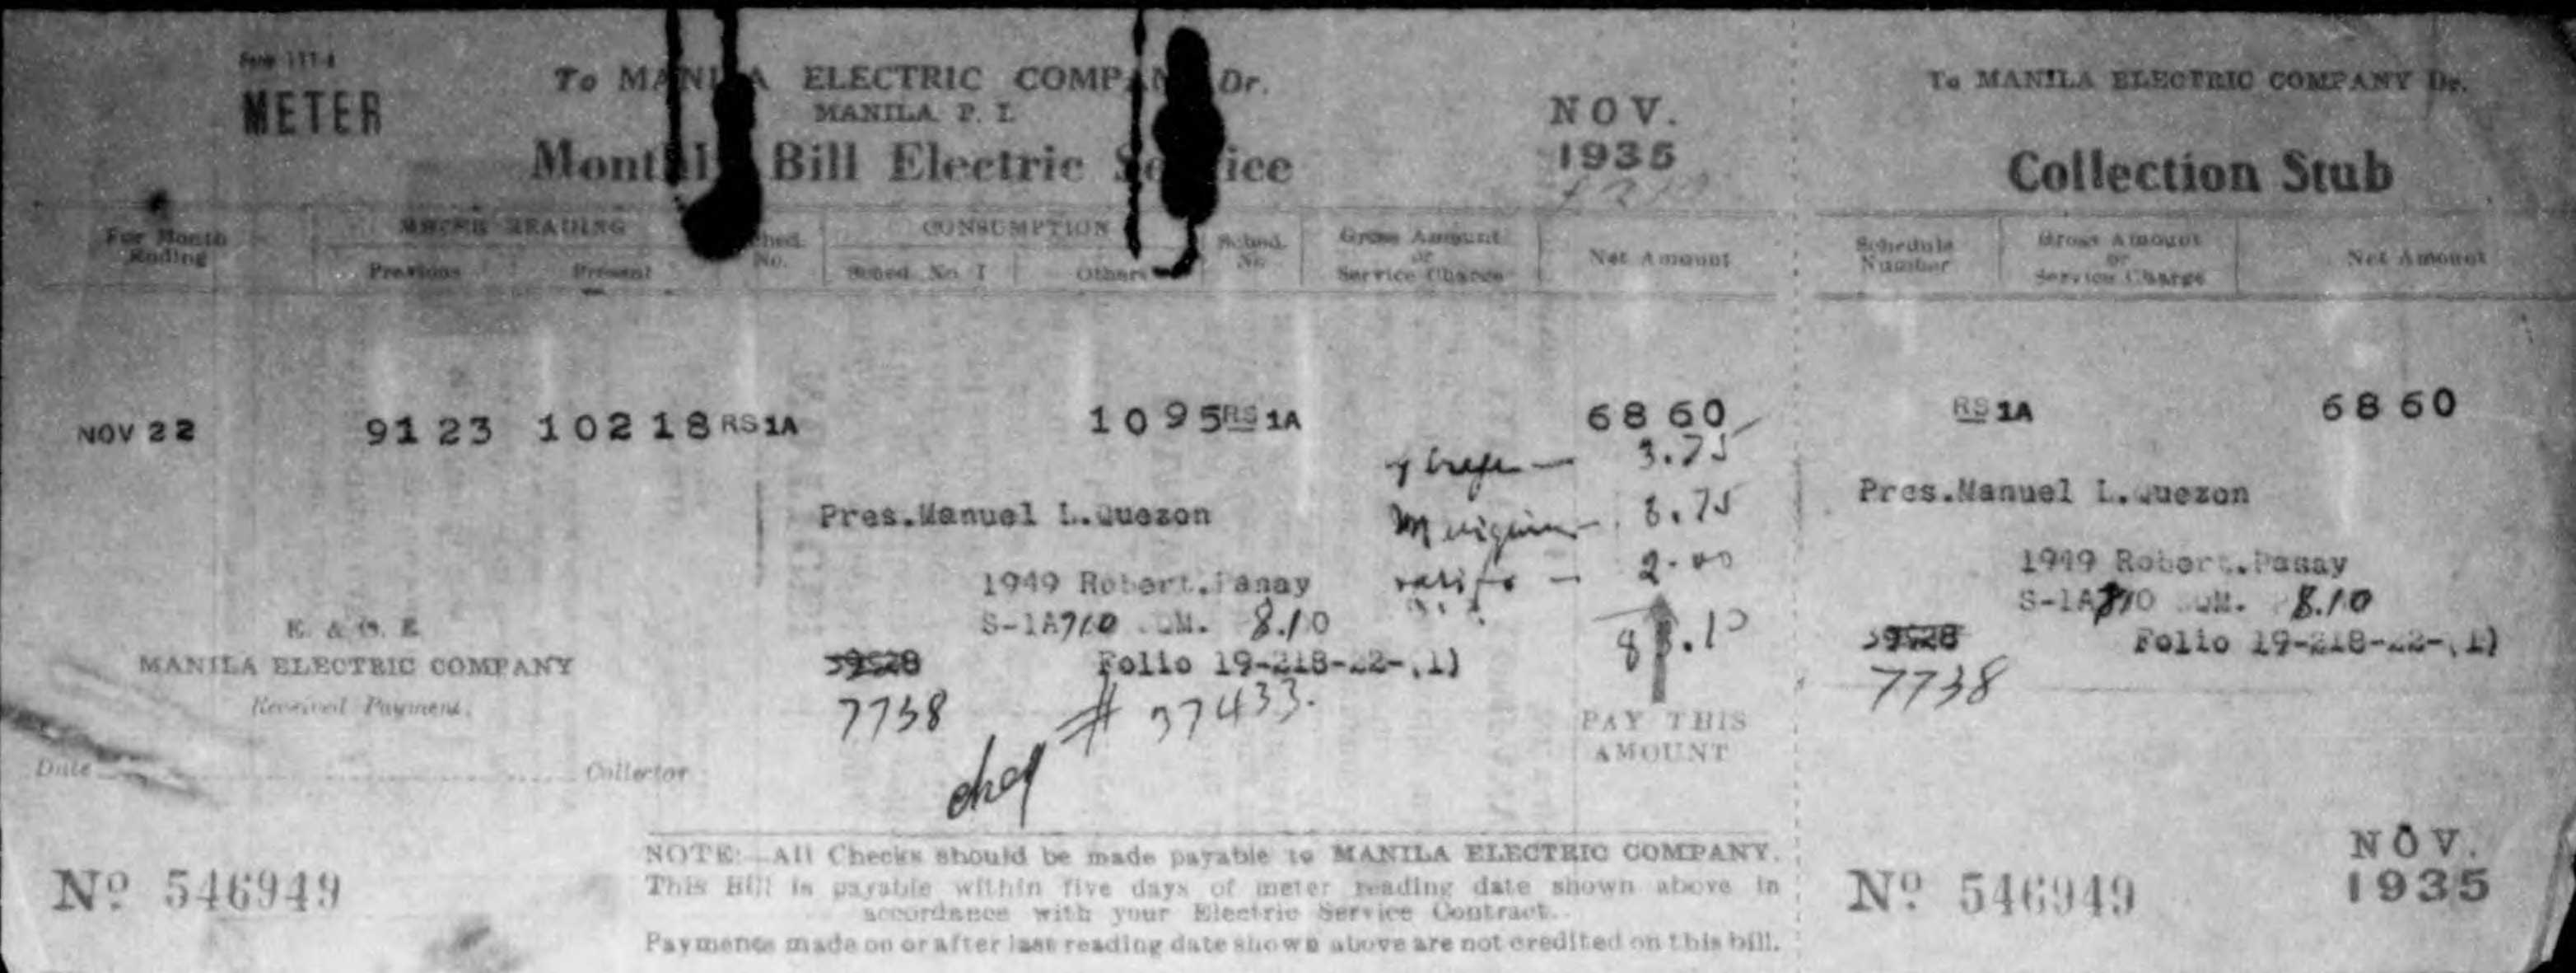 Form 111-A
METER
To MANILA ELECTRIC COMPANY Dr.
MANILA P. I.
Monthly Bill Electric Service
NOV.
1935
For Month Ending
METER READING
Previous Present
Sched. No.
CONSUMPTION
Sched. No. I Others
Sched. No.
Gross Amount or Service Charge
Net Amount
NOV 22 9123 10218 RS 1A 1095 RS 1A 68 60
3.75
Pres.Manuel L.Quezon
8.75
2.00
1949 Robert.Pasay
S-1A 710 8.10
39528 Folio 19-218-22-(1)
7738 # 37433.
PAY THIS
AMOUNT
E. & O. E.
MANILA ELECTRIC COMPANY
Received Payment.
Date Collector
Nº 546949
NOTE:—All Checks should be made payable to MANILA ELECTRIC COMPANY.
This Bill is payable within five days of meter reading date shown above in
accordance with your Electric Service Contract.
Payments made on or after last reading date shown above are not credited on this bill.
To MANILA ELECTRIC COMPANY Dr.
Collection Stub
Schedule Number
Gross Amount or Service Charge
Net Amount
RS 1A 68 60
Pres.Manuel L.Quezon
1949 Robert.Pasay
S-1A 8.10
39528 Folio 19-218-22-(1)
7738
Nº 546949
NOV.
1935